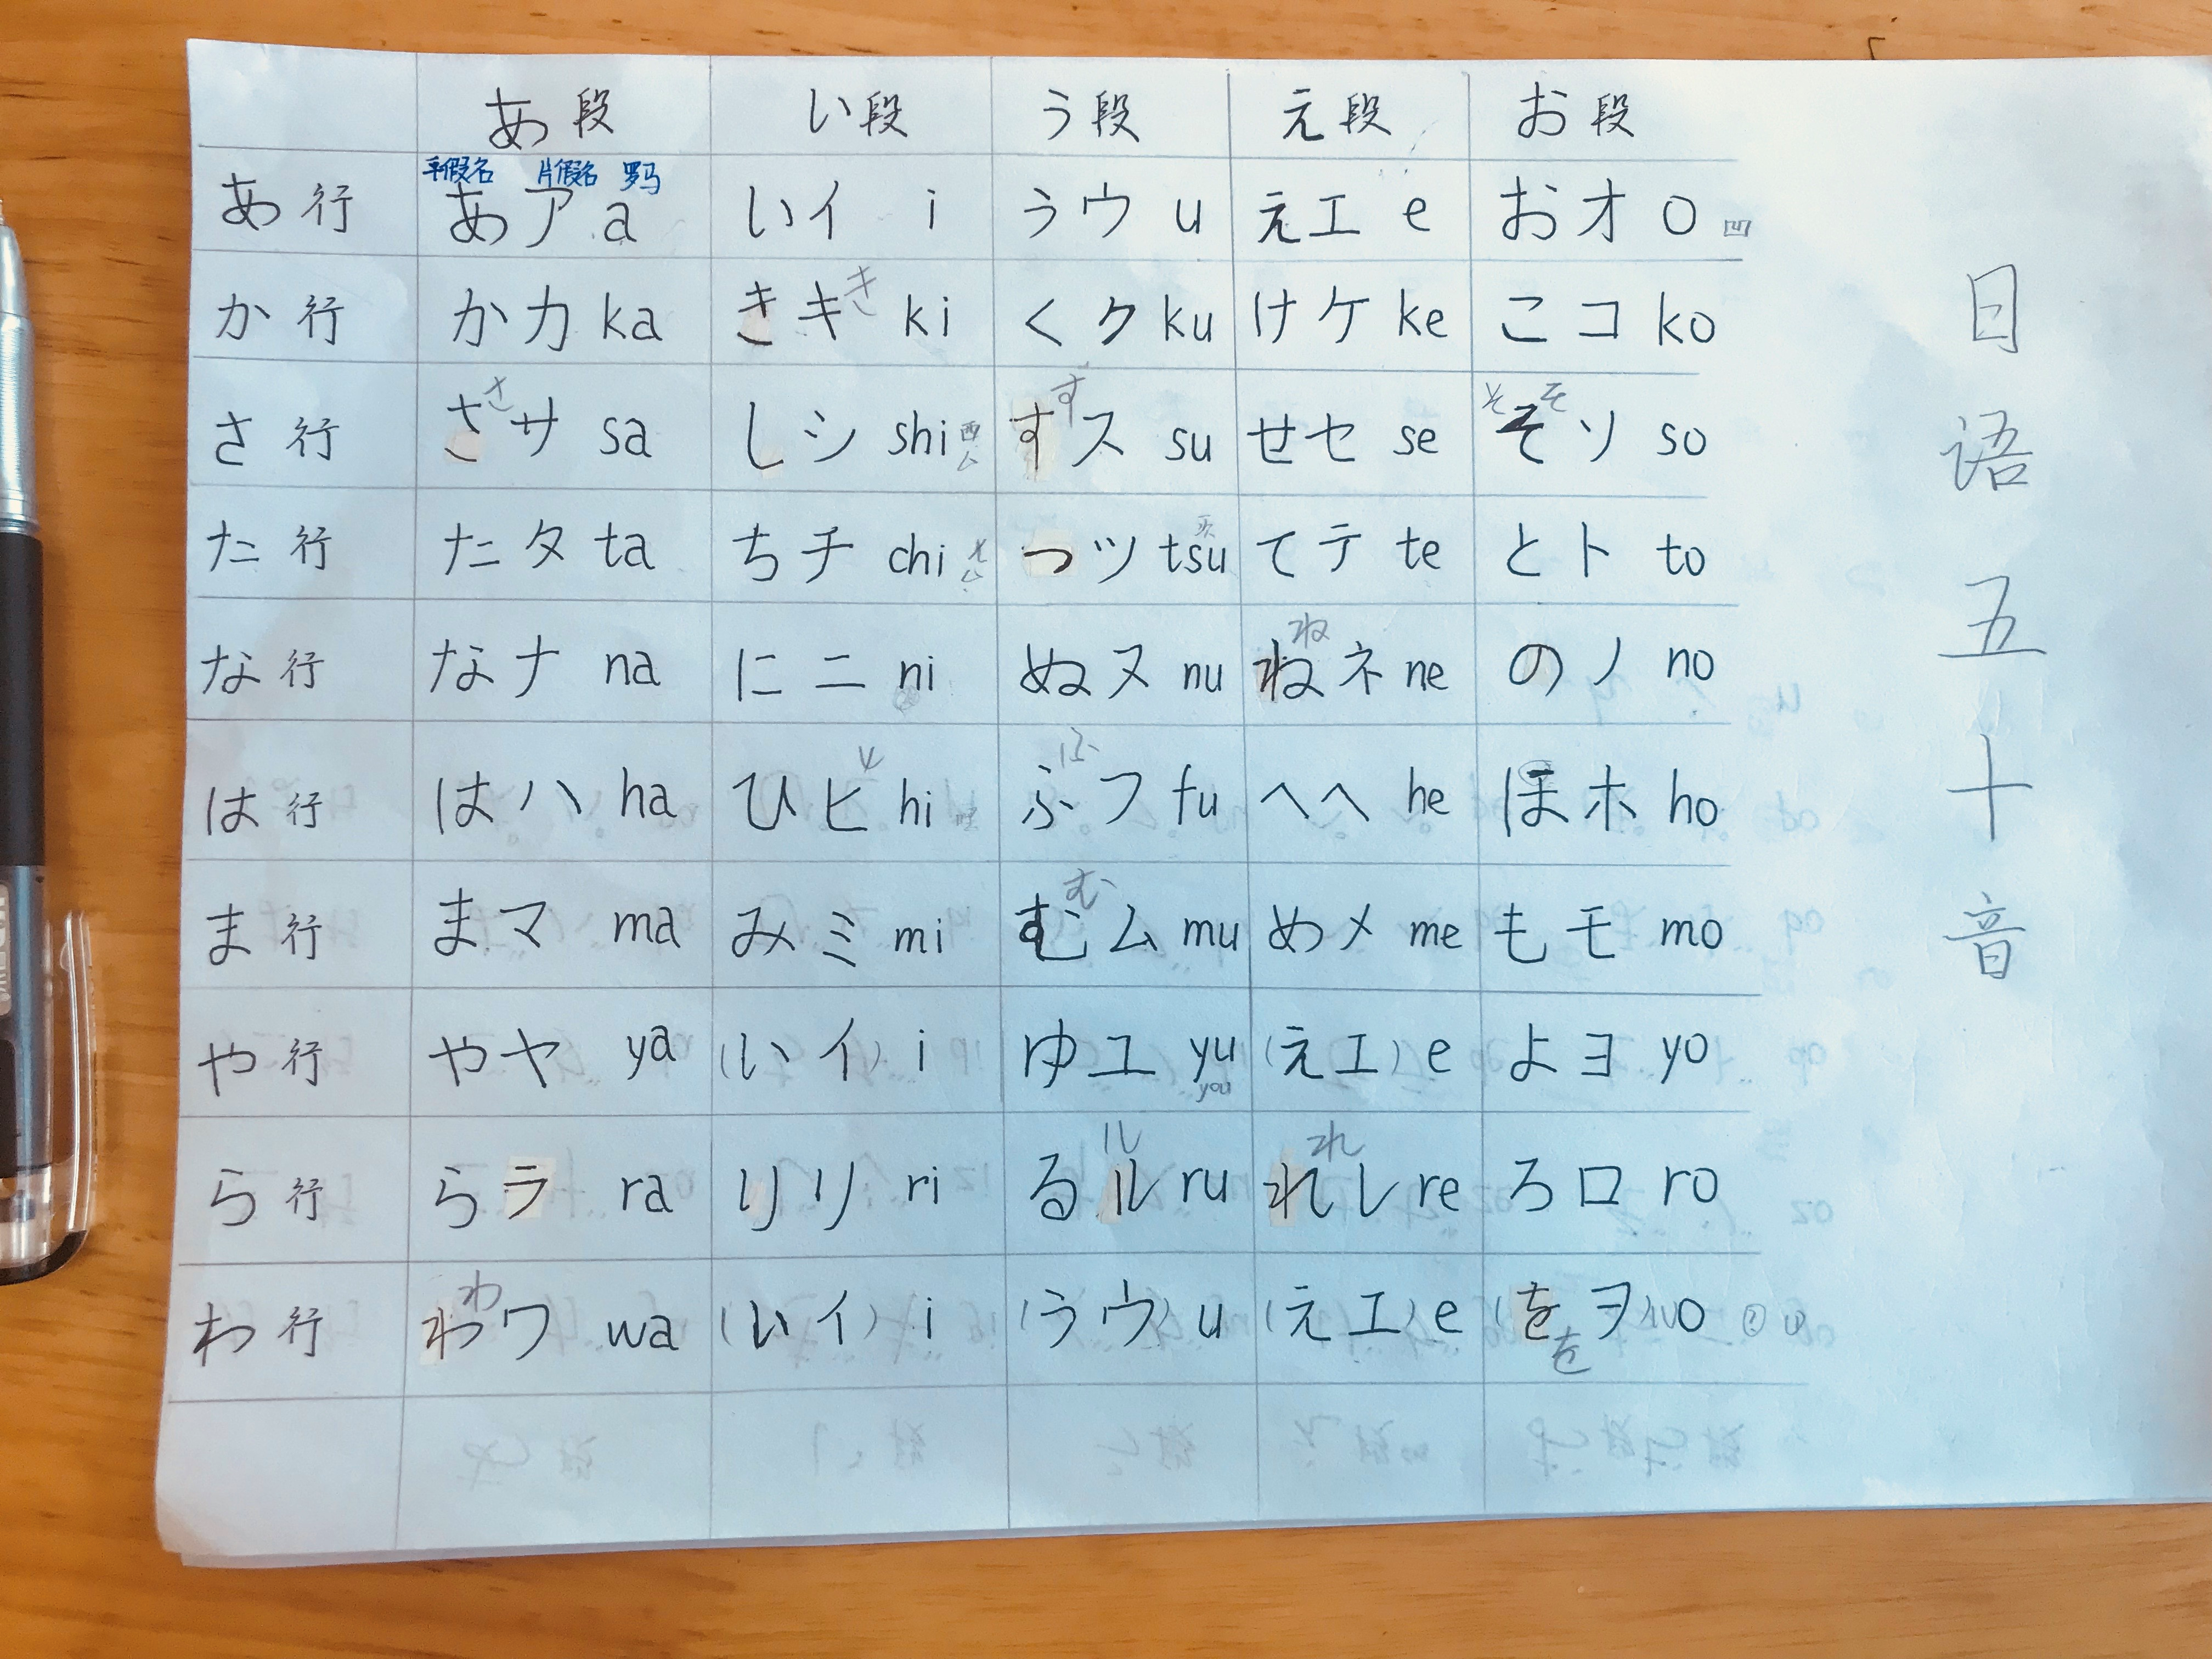 あ段 い段 う段 え段 お段
平假名 片假名 罗马
あ行 あア a いイ i うウ u えエ e おオ o 凹
き
か行 かカ ka きキ ki くク ku けケ ke こコ ko
さ す そ そ
さ行 さサ sa しシ shi すス su せセ se そソ so
た行 たタ ta ちチ chi つツ tsu てテ te とト to
ね
な行 なナ na にニ ni ぬヌ nu ねネ ne のノ no
ふ
は行 はハ ha ひヒ hi ふフ fu へヘ he ほホ ho
む
ま行 まマ ma みミ mi むム mu めメ me もモ mo
や行 やヤ ya (いイ) i ゆユ yu (えエ) e よヨ yo
you
ル れ
ら行 らラ ra りリ ri るル ru れレ re ろロ ro
わ
わ行 わワ wa (いイ) i (うウ) u (えエ) e (をヲ) o
を
日语五十音